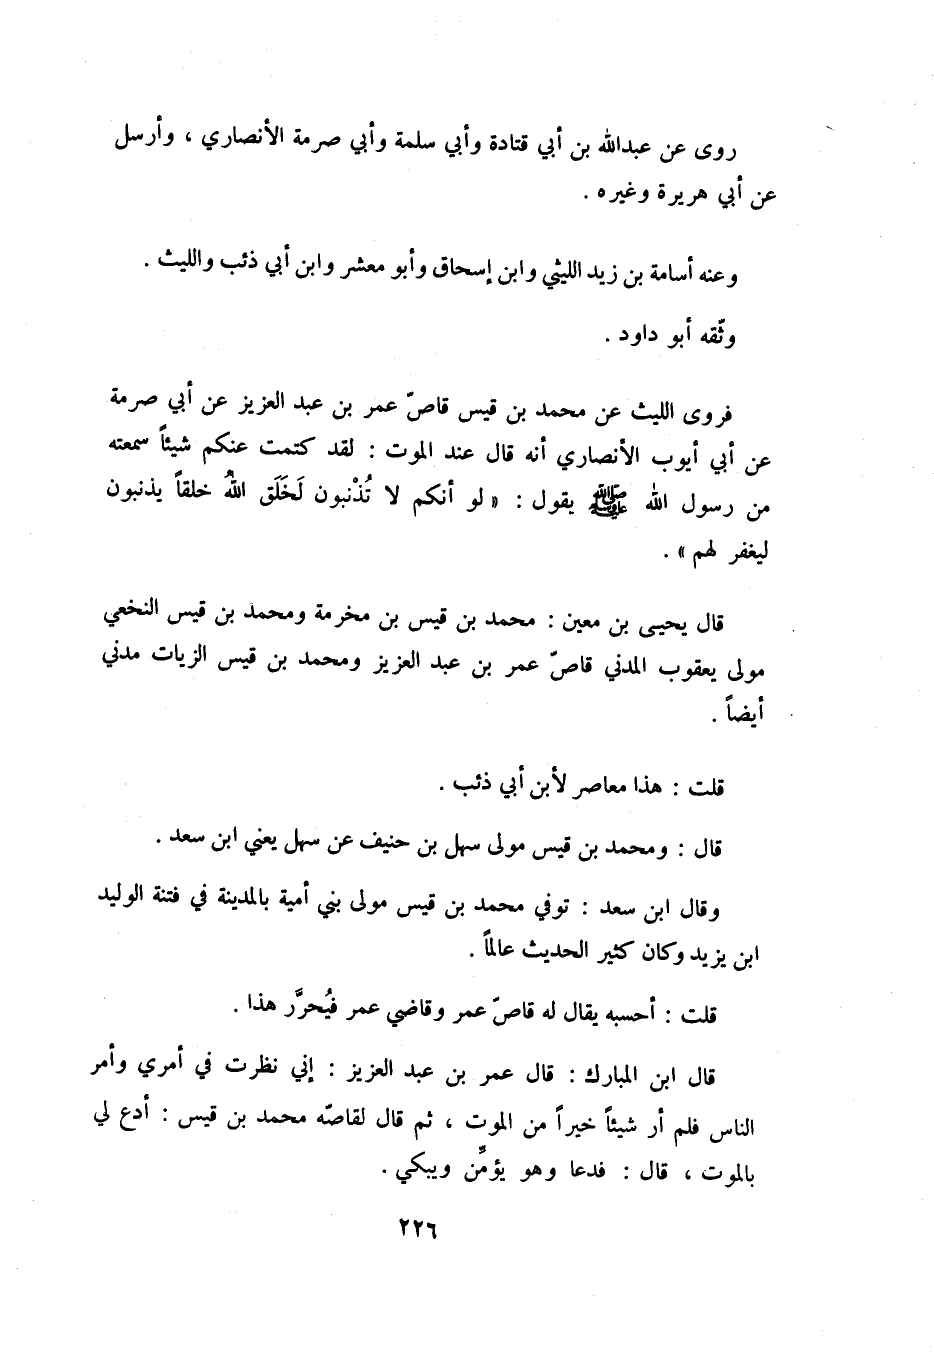 روى عن عبدالله بن أبي قتادة وأبي سلمة وأبي صرمة الأنصاري ، وأرسل
عن أبي هريرة وغيره .
وعنه أسامة بن زيد الليثي وابن إسحاق وأبو معشر وابن أبي ذئب والليث .
وثّقه أبو داود .
فروى الليث عن محمد بن قيس قاصّ عمر بن عبد العزيز عن أبي صرمة
عن أبي أيوب الأنصاري أنه قال عند الموت : لقد كتمت عنكم شيئاً سمعته
من رسول الله ﷺ يقول : « لو أنكم لا تُذْنبون لَخَلَق اللهُ خلقاً يذنبون
ليغفر لهم » .
قال يحيى بن معين : محمد بن قيس بن مخرمة ومحمد بن قيس النخعي
مولى يعقوب المدني قاصّ عمر بن عبد العزيز ومحمد بن قيس الزيات مدني
أيضاً .
قلت : هذا معاصر لأبن أبي ذئب .
قال : ومحمد بن قيس مولى سهل بن حنيف عن سهل يعني ابن سعد .
وقال ابن سعد : توفي محمد بن قيس مولى بني أمية بالمدينة في فتنة الوليد
ابن يزيد وكان كثير الحديث عالماً .
قلت : أحسبه يقال له قاصّ عمر وقاضي عمر فيُحرَّر هذا .
قال ابن المبارك : قال عمر بن عبد العزيز : إني نظرت في أمري وأمر
الناس فلم أر شيئاً خيراً من الموت ، ثم قال لقاصّه محمد بن قيس : أدع لي
بالموت ، قال : فدعا وهو يؤمِّن ويبكي .
٢٢٦